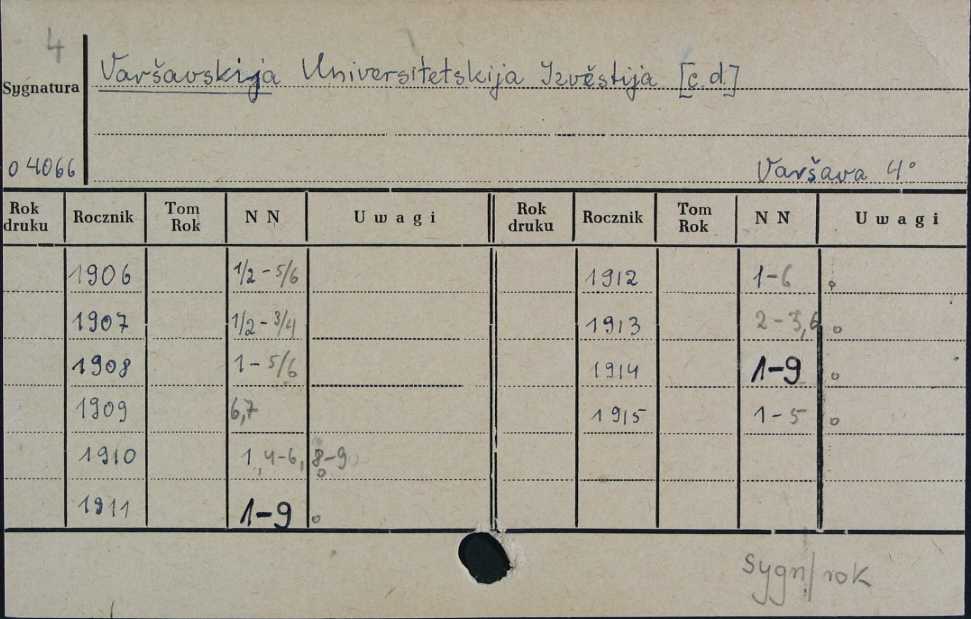 4
Varšavskija Universitetskija Izvěstija [c.d.]
Sygnatura
04066
Varšava 4°
Rok druku Rocznik Tom Rok N N Uwagi Rok druku Rocznik Tom Rok N N Uwagi
1906 1/2-5/6 1912 1-6 o
1907 1/2-3/4 1913 2-3,6 o
1908 1-5/6 1914 1-9 o
1909 6,7 1915 1-5 o
1910 1,4-6,8-9 o
1911 1-9 o
sygn/rok